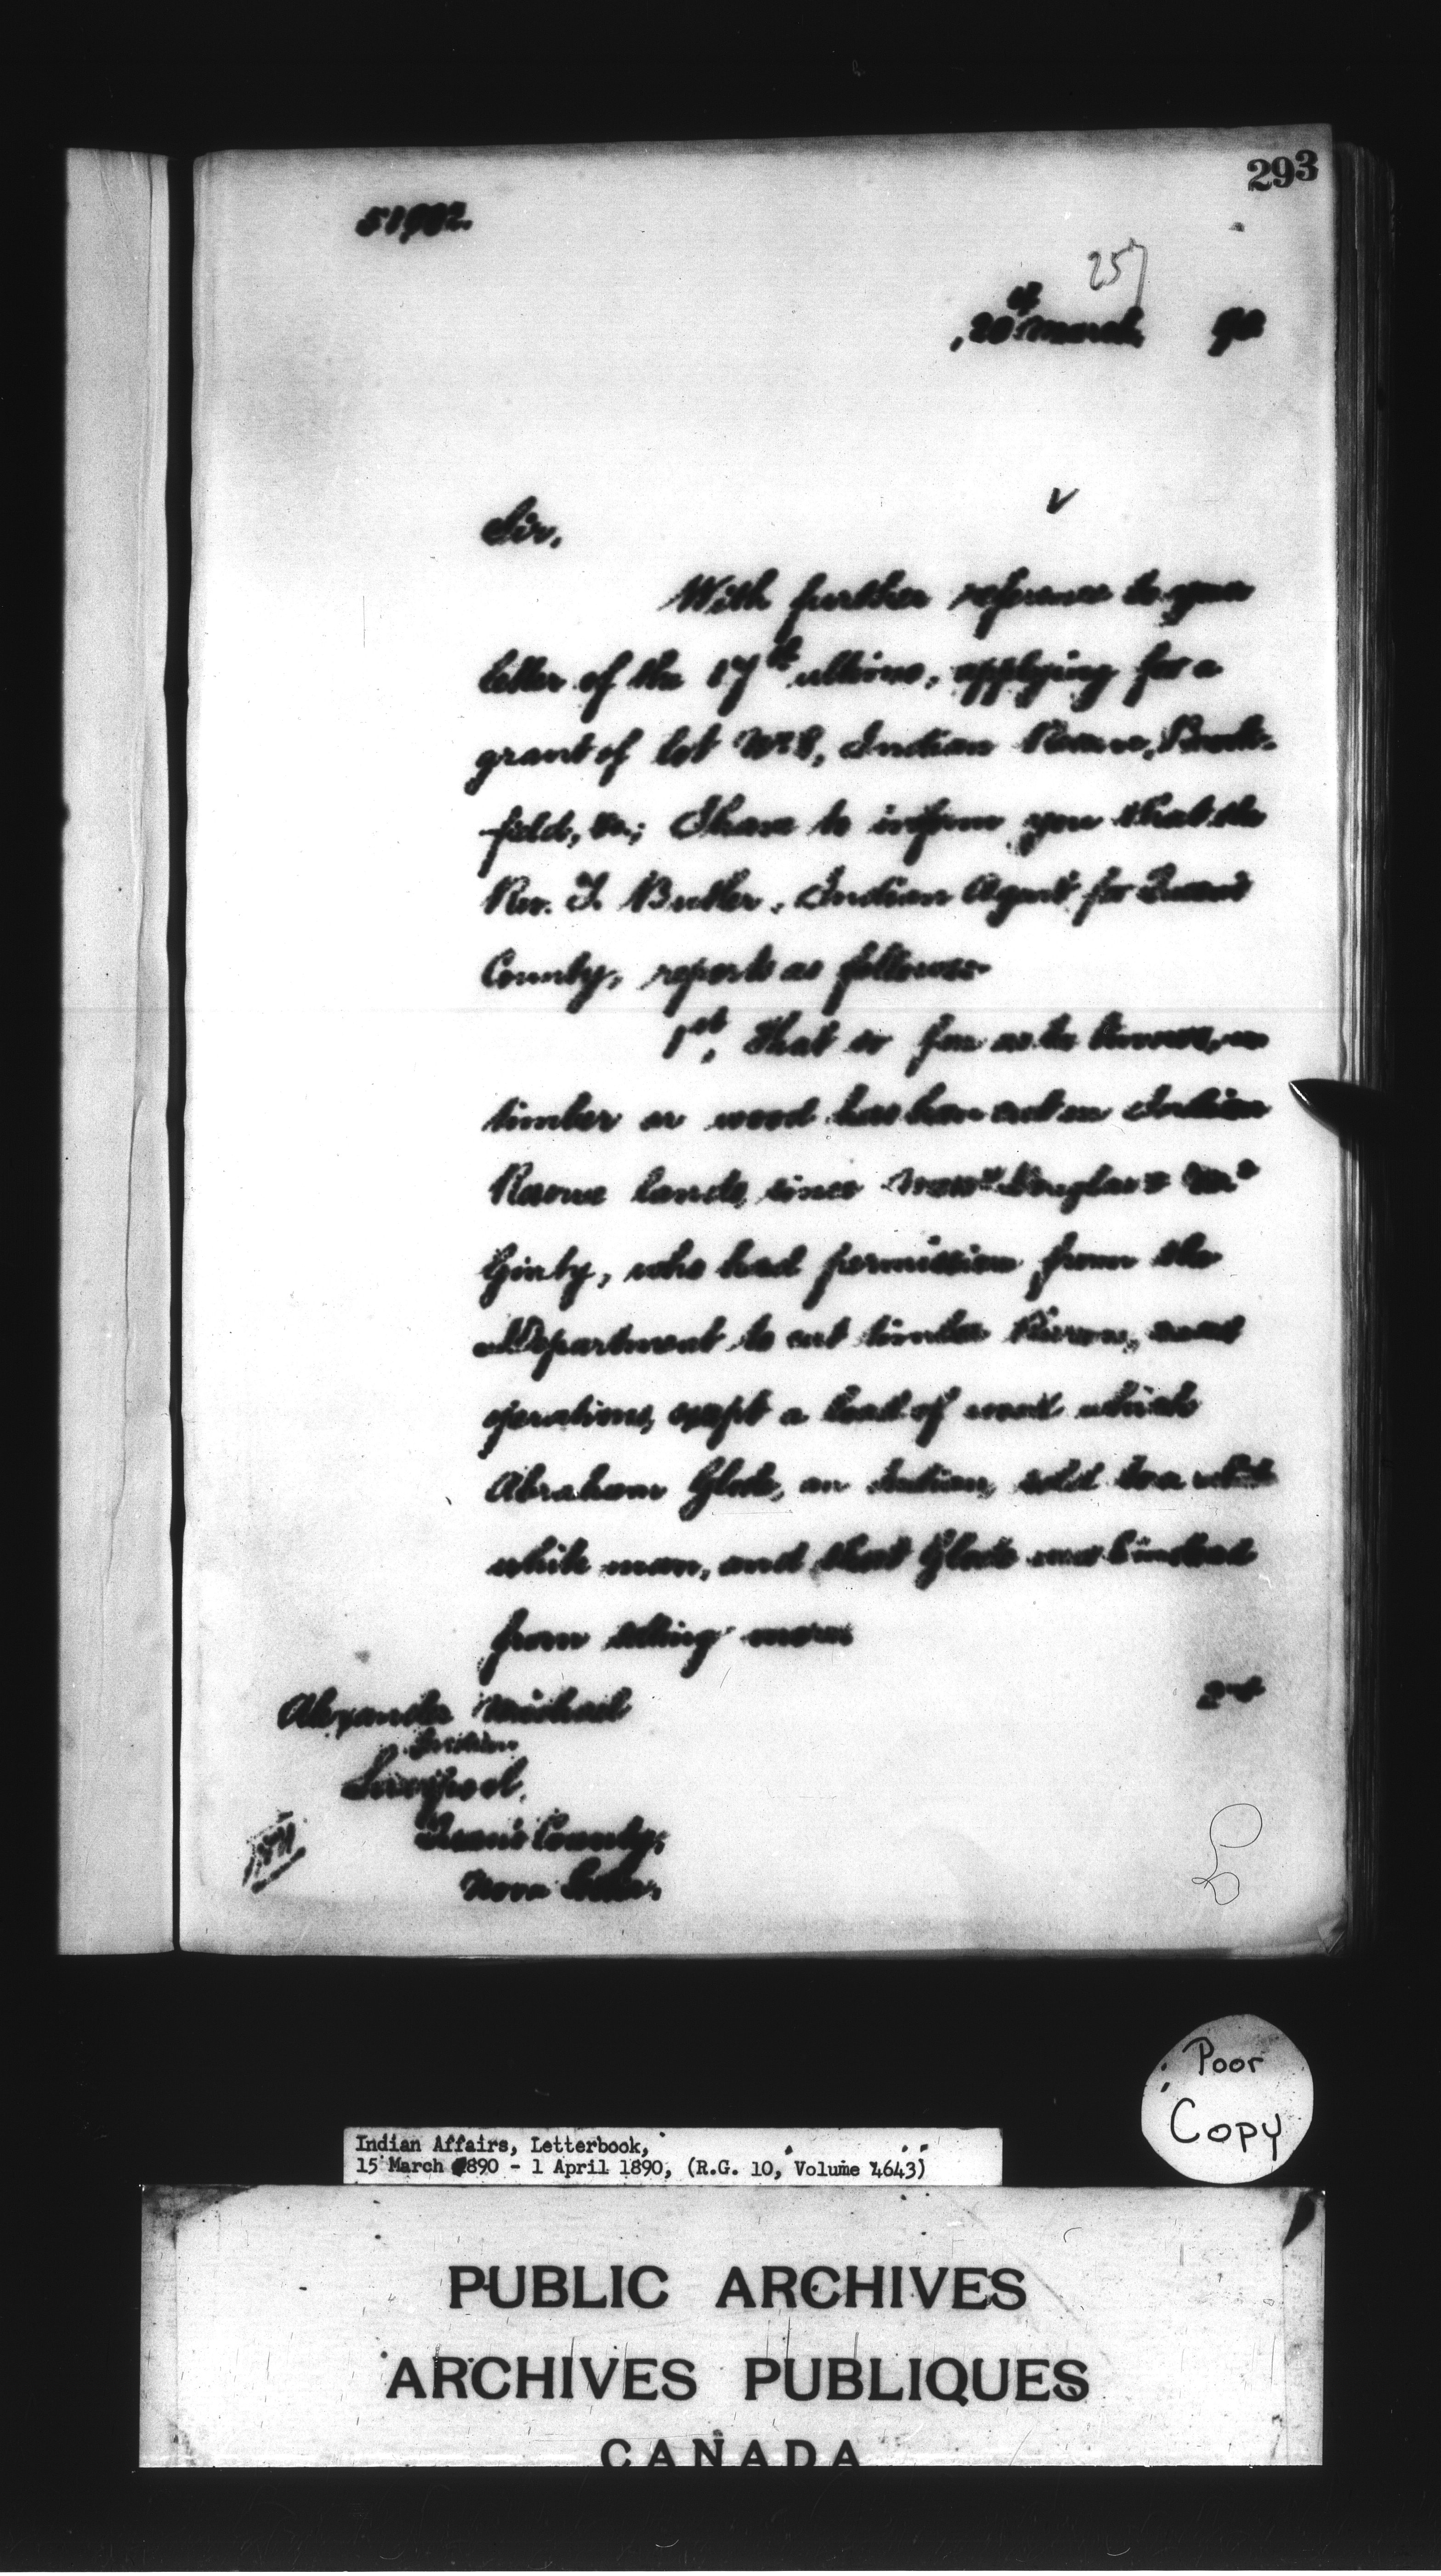 293
257
20th March, 90
Sir,
With further reference to your
letter of the 17th ultimo, applying for a
grant of lot No 8, Indian Reserve, Brook-
field, &c; I have to inform you that the
Rev. T. Butler, Indian Agent for Queen's
County, reports as follows:-
1st, That so far as he knows, no
timber or wood has been cut on Indian
Reserve lands, since Douglas & Mc
Ginty, who had permission from the
Department to cut timber thereon, ceased
operations, except a load of wood which
Abraham Glode, an Indian, sold to a
white man, and that Glode was hindered
from selling more
2nd
Alexander Michael
Indian
Liverpool,
Queen's County,
Nova Scotia.
Poor
Copy
Indian Affairs, Letterbook,
15 March 1890 - 1 April 1890, (R.G. 10, Volume 4643)
PUBLIC ARCHIVES
ARCHIVES PUBLIQUES
CANADA